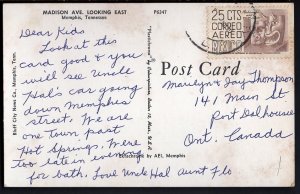 MADISON AVE. LOOKING EAST
Memphis, Tennessee
P6347
Dear Kids
Look at this
card good & you
will see Uncle
Hal's car going
down Memphis
street. We are
one town past
Hot Springs. Were
too late in evening
for bath. Love Uncle Hal aunt Flo
Bluff City News Co., Memphis, Tenn.
by AEI, Memphis
25 CTS
CORREO
AEREO
Post Card
Marilyn & Jay Thompson
141 Main St
Port Dalhousie
Ont. Canada